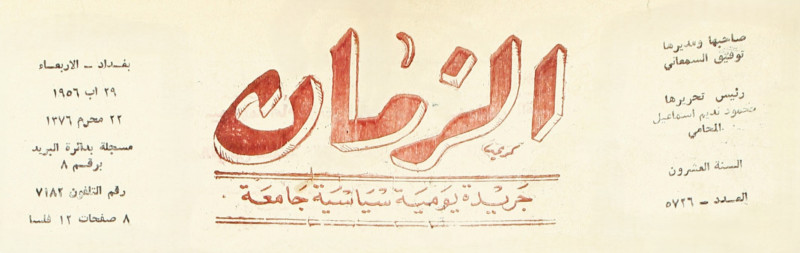 صاحبها ومديرها
توفيق السمعاني
رئيس تحريرها
محمود نديم اسماعيل
المحامي
السنة العشرون
العدد — ٥٧٢٦
الزمان
جريدة يومية سياسية جامعة
بغداد — الاربعاء
٢٩ اب ١٩٥٦
٢٢ محرم ١٣٧٦
مسجلة بدائرة البريد
برقم ٨
رقم التلفون ٧١٨٢
٨ صفحات ١٢ فلسا